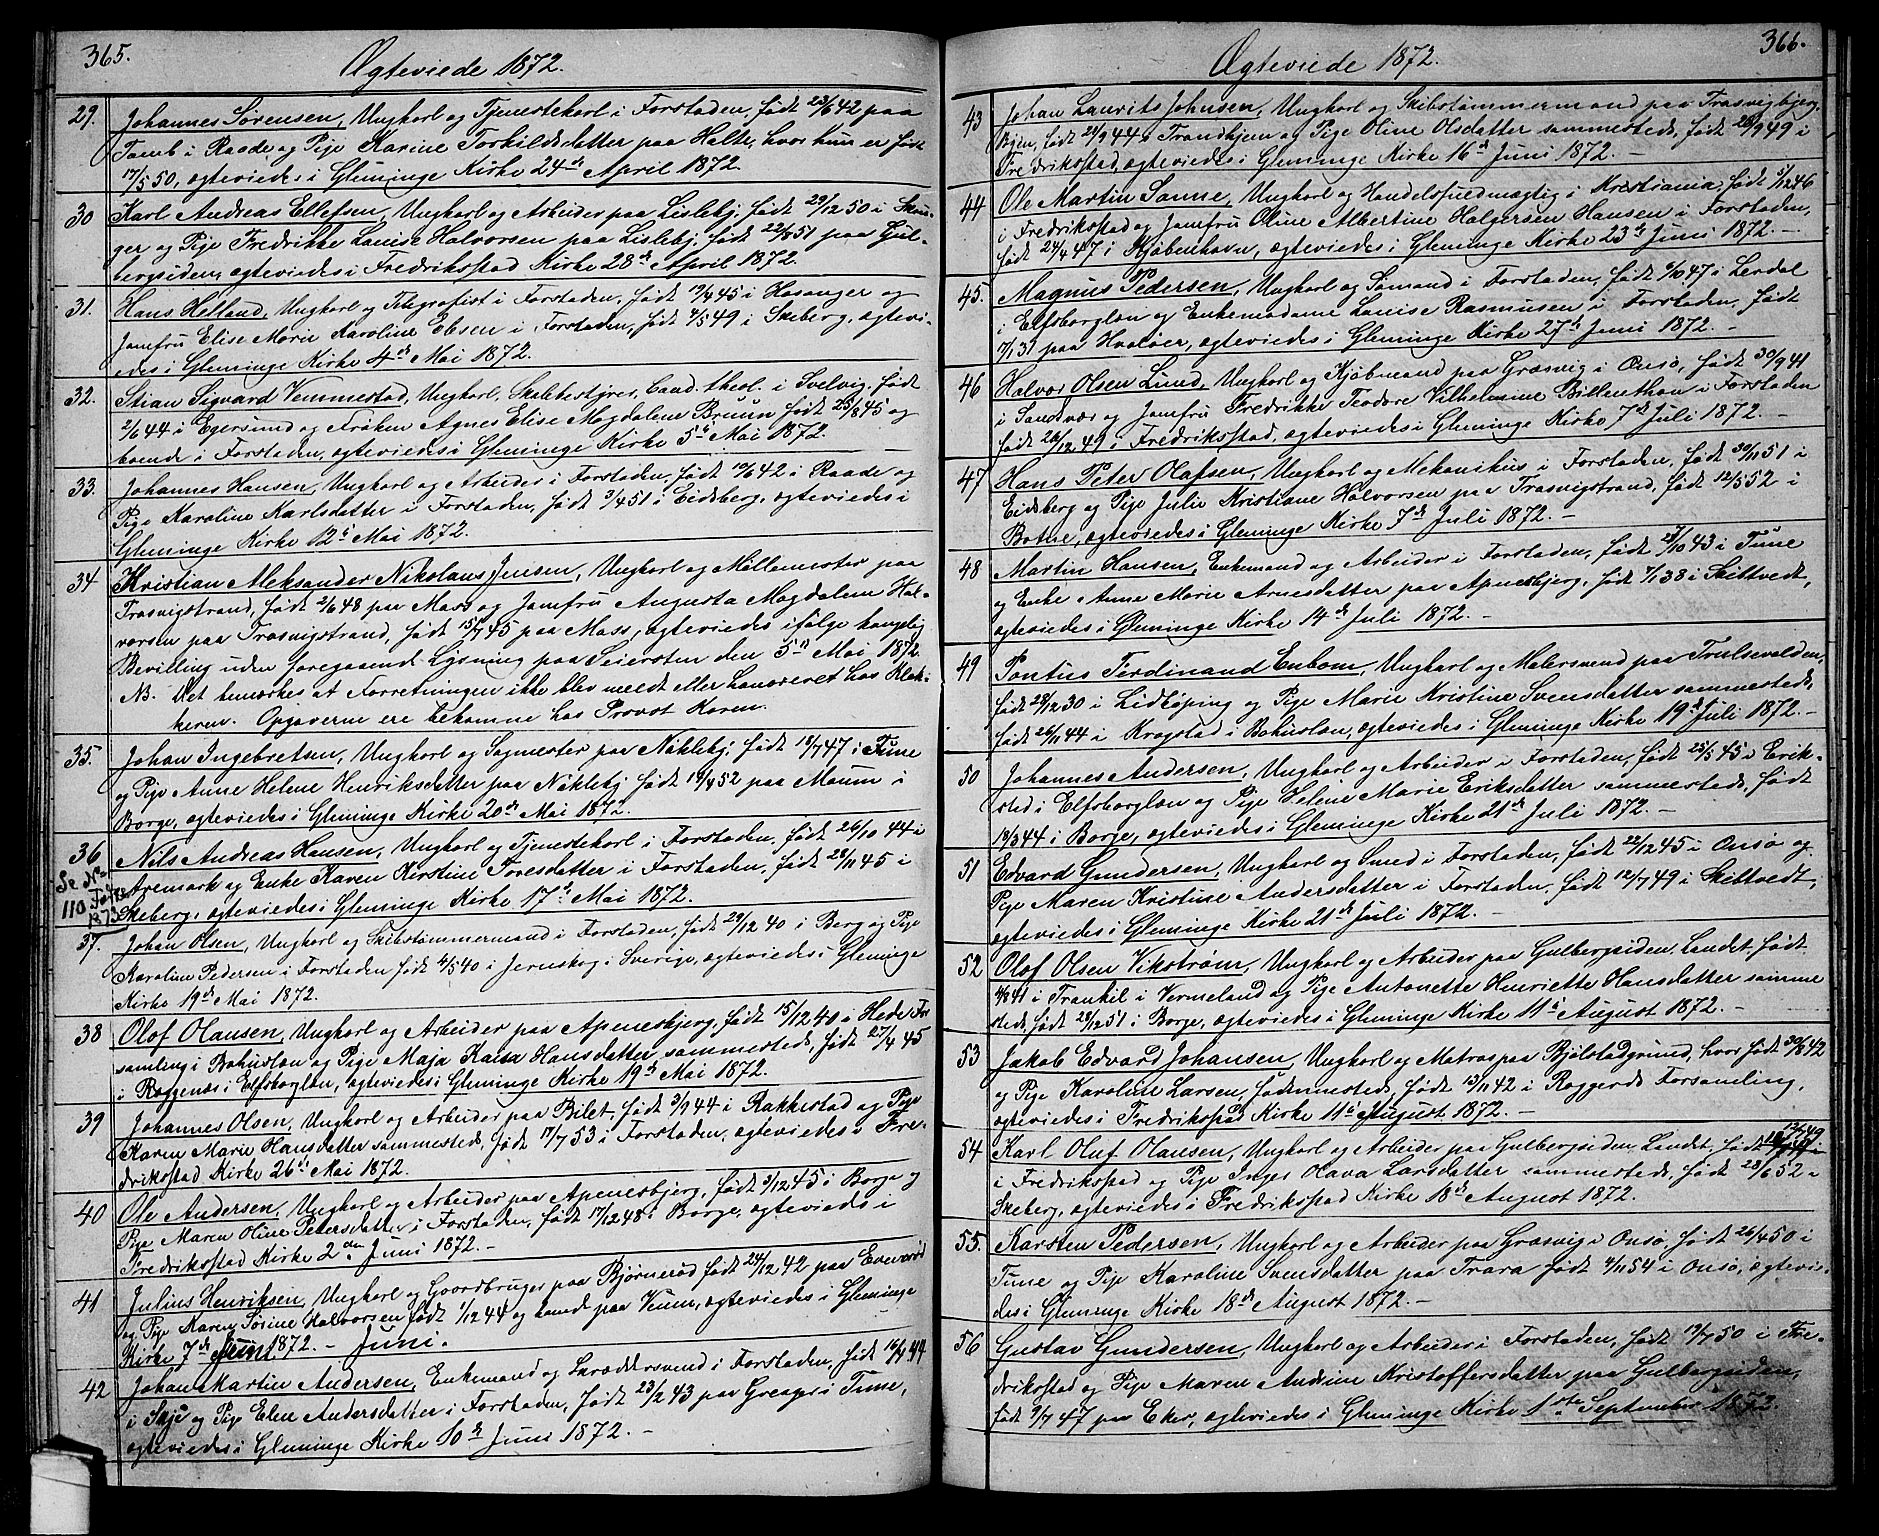 365.
Ægteviede 1872.
29. Johannes Sørensen, Ungkarl og Tjenestekarl i Forstaden, født 23/6 42 paa
Tomb i Raade og Pige Karine Torkildsdatter paa Holte, hvor hun er født
17/5 50, ægteviedes i Gleminge Kirke 24de April 1872.
30 Karl Andreas Ellefsen, Ungkarl og Arbeider paa Lisleby, født 29/12 50 i Skau-
ger og Pige Fredrikke Louise Halvorsen paa Lisleby, født 22/8 51 paa Gul-
bergsiden, ægteviedes i Fredriksstad Kirke 28de April 1872.
31. Hans Helland, Ungkarl og Telegrafist i Forstaden, født 19/4 45 i Hosanger og
Jomfru Elise Marie Karoline Ebsen i Forstaden, født 4/5 49 i Skeberg, ægtevi-
edes i Gleminge Kirke 4de Mai 1872.
32. Stian Sigvard Vemmestad, Ungkarl, Skolebestyrer, Cand. theol. i Svelvig, født
2/6 44 i Egersund og Frøken Agnes Elise Magdalene Bruun født 23/8 45 og
boende i Forstaden, ægteviedes i Gleminge Kirke 5te Mai 1872.
33. Johannes Hansen, Ungkarl og Arbeider i Forstaden, født 10/6 42 i Raade og
Pige Karoline Karlsdatter i Forstaden, født 3/4 51 i Eidsberg, ægteviedes i
Gleminge Kirke 12te Mai 1872.
34 Kristian Aleksander Nikolaus Jensen, Ungkarl og Møllemester paa
Trosvigstrand, født 2/6 48 paa Moss og Jomfru Augusta Magdalene Hal-
vorsen paa Trosvigstrand, født 15/7 45 paa Moss, ægteviedes ifølge kongelig
Bevilling uden foregaaende Lysning paa Seiersten den 5te Mai 1872.
NB. Det bemærkes at Forretningen ikke blev meldt eller honoreret hos Klok-
keren. Opgaverne ere bekomne hos Provst Koren.
35. Johan Ingebretsen, Ungkarl og Sagmester paa Nøkleby, født 18/7 47 i Tune
og Pige Anne Helene Henriksdatter paa Nøkleby født 19/4 52 paa Moum i
Borge, ægteviedes i Gleminge Kirke 20de Mai 1872.
36 Nils Andreas Hansen, Ungkarl og Tjenestekarl i Forstaden, født 26/10 44 i
Se No 110 Fødte 1873
Aremark og Enke Karen Kirstine Toresdatter i Forstaden, født 28/11 45 i
Skeberg, ægteviedes i Gleminge Kirke 17de Mai 1872.
37. Johan Olsen, Ungkarl og Skibstømmermand i Forstaden, født 29/12 40 i Berg og Pige
Karoline Pedersen i Forstaden født 4/5 40 i Jernskog i Sverige, ægteviedes i Gleminge
Kirke 19de Mai 1872.
38 Olof Olausen, Ungkarl og Arbeider paa Apenesbjerg, født 15/12 40 i Hede For
samling i Bohuslæn og Pige Maja Kaisa Hansdatter sammesteds, født 27/4 45
i Roggenæs i Elfsborglæn, ægteviedes i Gleminge Kirke 19de Mai 1872.
39 Johannes Olsen, Ungkarl og Arbeider paa Bilet, født 3/9 44 i Rakkestad og Pige
Karen Marie Hansdatter sammesteds, født 17/7 53 i Forstaden, ægteviedes i Fre-
driksstad Kirke 26de Mai 1872.
40 Ole Andersen, Ungkarl og Arbeider paa Apenesbjerg, født 3/12 45 i Borge og
Pige Maren Oline Petersdatter i Forstaden, født 17/12 48 i Borge, ægteviedes i
Fredriksstad Kirke 2den Juni 1872.
41 Julius Henriksen, Ungkarl og Gaardbruger paa Bjørnerød født 24/12 42 paa Evenrød
og Pige Maren Sørine Halvorsen født 1/12 44 og boende paa Veum, ægteviedes i Gleminge
Kirke 7de Juni 1872. - Juni.
42 Johan Martin Andersen, Enkemand og Skræddersvend i Forstaden, født 16/9 44
i Skje og Pige Elen Andersdatter i Forstaden, født 23/2 43 paa Greager i Tune,
ægteviedes i Gleminge Kirke 10de Juni 1872. -
366.
Ægteviede 1872.
43 Johan Laurits Johnsen, Ungkarl og Skibstømmermand paa Trosvigbjerg,
Byen, født 29/9 44 i Trondhjem og Pige Oline Olsdatter sammesteds, født 28/9 49 i
Fredrikstad, ægteviedes i Gleminge Kirke 16de Juni 1872. -
44 Ole Martin Sanne, Ungkarl og Handelsfuldmægtig i Kristiania, født 5/12 46
i Fredriksstad og Jomfru Oline Albertine Holgersen Hansen i Forstaden,
født 24/4 47 i Kjøbenhavn, ægteviedes i Gleminge Kirke 23de Juni 1872. -
45. Magnus Pedersen, Ungkarl og Sømand i Forstaden, født 6/10 47 i Lerdal
i Elfsborglæn og Enkemadame Louise Rasmusen i Forstaden, født
7/1 31 paa Hvaløer, ægteviedes i Gleminge Kirke 27de Juni 1872. -
46 Halvor Olsen Lund, Ungkarl og Kjøbmand paa Græsvig i Onsø, født 30/9 41
i Sandsvær og Jomfru Fredrikke Teodore Vilhelmine Billenthon i Forstaden
født 26/12 49 i Fredriksstad, ægteviedes i Gleminge Kirke 7de Juli 1872. -
47 Hans Peter Olafsen, Ungkarl og Mekanikus i Forstaden, født 30/11 51 i
Eidsberg og Pige Julie Kristiane Halvorsen paa Trosvigstrand, født 12/5 52 i
Botne, ægteviedes i Gleminge Kirke 7de Juli 1872. -
48 Martin Hansen, Enkemand og Arbeider i Forstaden, født 27/10 43 i Tune
og Enke Anne Marie Arnesdatter paa Apenesbjerg, født 7/1 38 i Skittvedt,
ægteviedes i Gleminge Kirke 14de Juli 1872. -
49 Pontus Ferdinand Enbom, Ungkarl og Malersvend paa Trulsevolden,
født 28/12 30 i Lidkøping og Pige Marie Kristine Svensdatter sammesteds,
født 26/11 44 i Krogstad i Bohuslæn, ægteviedes i Gleminge Kirke 19de Juli 1872. -
50 Johannes Andersen, Ungkarl og Arbeider i Forstaden, født 25/5 45 i Erik-
sted i Elfsborglæn og Pige Helene Marie Eriksdatter sammesteds, født
18/3 44 i Borge, ægteviedes i Gleminge Kirke 21de Juli 1872. -
51 Edvard Gundersen, Ungkarl og Smed i Forstaden, født 22/12 45 i Onsø og
Pige Maren Kristine Andersdatter i Forstaden, født 12/7 49 i Skittvedt,
ægteviedes i Gleminge Kirke 21de Juli 1872. -
52 Olof Olsen Vikstrøm, Ungkarl og Arbeider paa Gulbergsiden, Landet, født
4/8 41 i Trankil i Vermeland og Pige Antonette Henriette Hansdatter samme
steds, født 28/12 51 i Borge, ægteviedes i Gleminge Kirke 11te August 1872. -
53 Jakob Edvard Johansen, Ungkarl og Matros paa Bjølstadgrund, hvor født 30/8 42
og Pige Karoline Larsen, sammesteds, født 13/11 42 i Roggerds Forsamling,
ægteviedes i Fredrikstad Kirke 11te August 1872. -
54 Karl Oluf Olausen, Ungkarl og Arbeider paa Gulbergsiden, Landet, født 13/7 49
i Fredrikstad og Pige Inger Olava Larsdatter sammesteds, født 28/6 52 i
Skeberg, ægteviedes i Fredriksstad Kirke 18de August 1872.
55. Karsten Pedersen, Ungkarl og Arbeider paa Græsvig i Onsø, født 26/4 50 i
Tune og Pige Karoline Svensdatter paa Trara født 4/11 54 i Onsø, ægtevie-
des i Gleminge Kirke 18de August 1872. -
56 Gustav Gundersen, Ungkarl og Arbeider i Forstaden, født 19/7 50 i Fre-
drikstad og Pige Maren Andrine Kristoffersdatter paa Gulbergsiden,
født 9/7 47 paa Eker, ægteviedes i Gleminge Kirke 1ste September 1872.